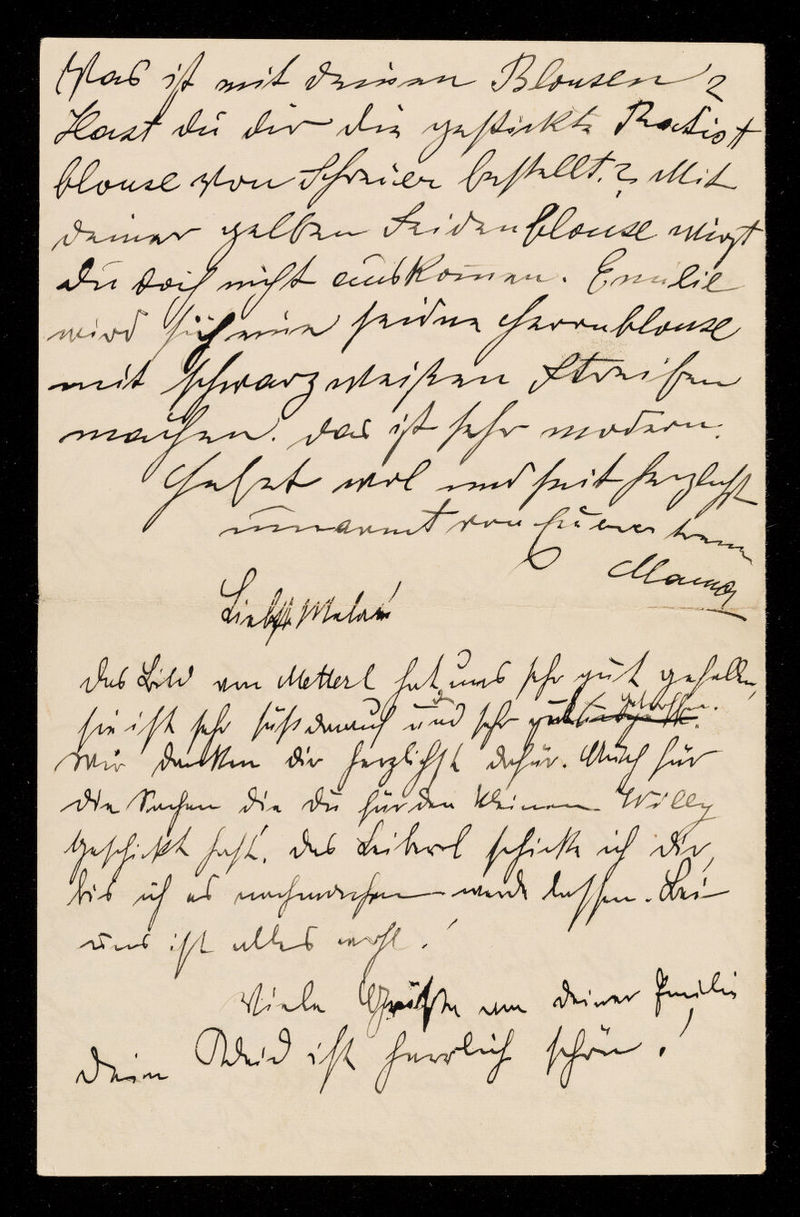 Was ist mit deinen Blousen?
Hast du dir die gestickte Batist
blouse von Schreier bestellt.? Mit
deiner gelben Seidenblouse wirst
du doch nicht auskommen. Emilie
wird sich eine seidne Herrnblouse
mit schwarz weißen Streifen
machen. das ist sehr modern.
Gehabt wol und seit herzlichst
umarmt von Euerer treuen
Mama
Liebste Melanie!
das Bild von Metterl hat uns sehr gut gefallen,
sie ist sehr süß darauf und sehr gut getroffen.
Wir danken dir herzlichst dafür. Auch für
die Sachen die du für den kleinen Willy
geschickt hast. das Leiberl schicke ich dir,
bis ich es nachmachen werde lassen. Bei
uns ist alles wohl!
Viele Grüße von deiner Emilie
Dein Kleid ist herrlich schön!